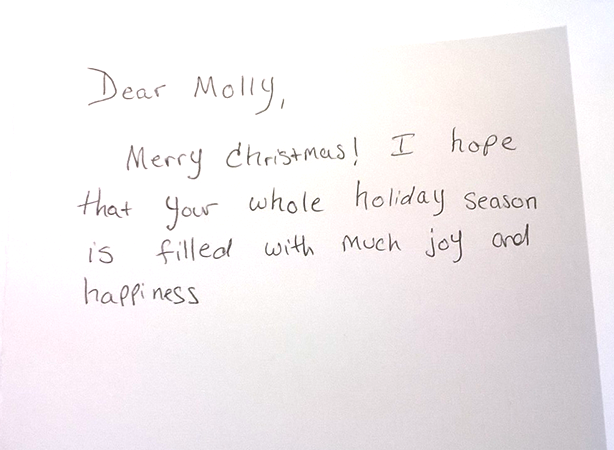 Dear Molly,
Merry Christmas! I hope
that your whole holiday season
is filled with much joy and
happiness